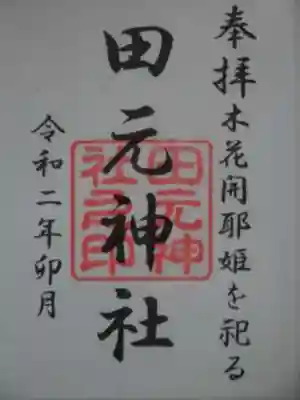 奉拝 木花開耶姫を祀る
田元神社
田元神
社之印
令和二年卯月